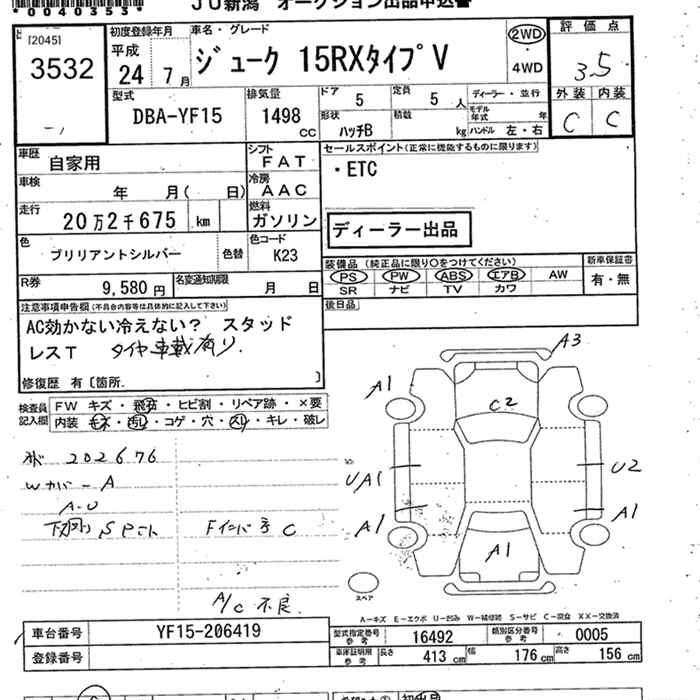 JU新潟 オークション出品申込書
*0040353*
[2045]
3532
初度登録年月
平成
24年 7月
車名・グレード
ジューク 15RXタイプV
2WD
4WD
評価点
3.5
外装 内装
C C
型式
DBA-YF15
排気量
1498 CC
ドア
5
定員
5人
形状
ハッチB
積載
kg
ディーラー・並行
モデル年式 年
ハンドル 左・右
車歴
自家用
シフト
FAT
車検
年 月( 日)
冷房
AAC
走行
20万2千675 km
燃料
ガソリン
色
ブリリアントシルバー
色替
色コード
K23
R券
9,580円
名変通知期限
月 日
セールスポイント(正常に機能するものに限ります)
・ETC
ディーラー出品
装備品(純正品に限り○をつけてください)
PS PW ABS エアB AW
SR ナビ TV カワ
新車保証書
有・無
後日品
注意事項申告欄(不具合内容等は具体的に記入して下さい)
AC効かない冷えない? スタッド
レスT タイヤ車載有り.
修復歴 有〔箇所. 〕
検査員記入欄
FW キズ・飛石・ヒビ割・リペア跡・×要
内装 コゲ・穴・スレ・キレ・破レ
202676
Wカバー A
A-U
下廻り Sセット
Fインパネ C
A/C 不良
A3
A1
C2
UA1
U2
A1
A1
A1
スペア
A-キズ E-エクボ U-凹み W-補修跡 S-サビ C-腐食 XX-交換済
車台番号
YF15-206419
登録番号
型式指定番号 参考
16492
類別区分番号 参考
0005
車庫証明用 参考
長さ 413cm 幅 176cm 高さ 156cm